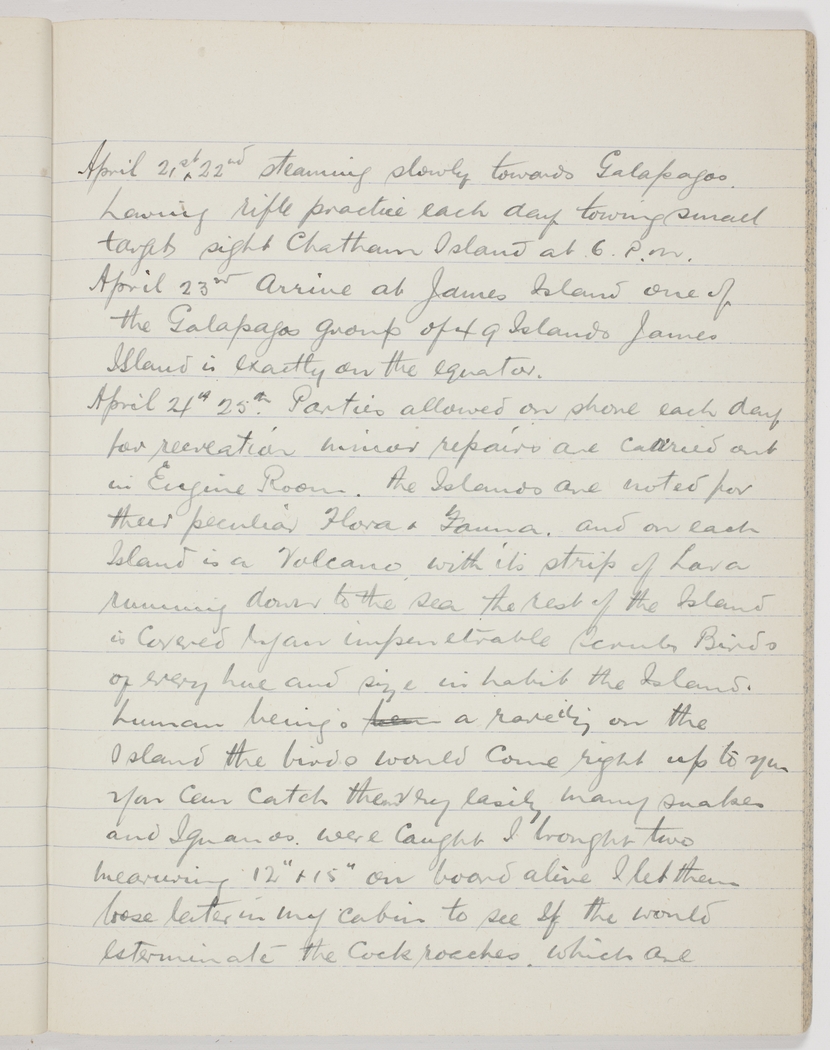 April 21st & 22nd steaming slowly towards Galapagos.
having rifle practice each day towing small
targets sight Chatham Island at 6. P.m.
April 23rd Arrive at James Island one of
the Galapagos group of 49 Islands James
Island is exactly on the equator.
April 24th 25th. Parties allowed on shore each day
for recreation minor repairs are carried out
in Engine Room. the Islands are noted for
their peculiar Flora & Fauna. and on each
Island is a Volcano with its strip of Lava
running down to the sea the rest of the Island
is Covered by an impenetrable scrub Birds
of every hue and size inhabit the Island.
human being's a rarety on the
Island the birds would Come right up to you
you can Catch them very easily many snakes
and Iguanas. were Caught I brought two
measuring 12" & 15" on board alive I let them
loose later in my cabin to see If the would
esterminate the Cockroaches. which are